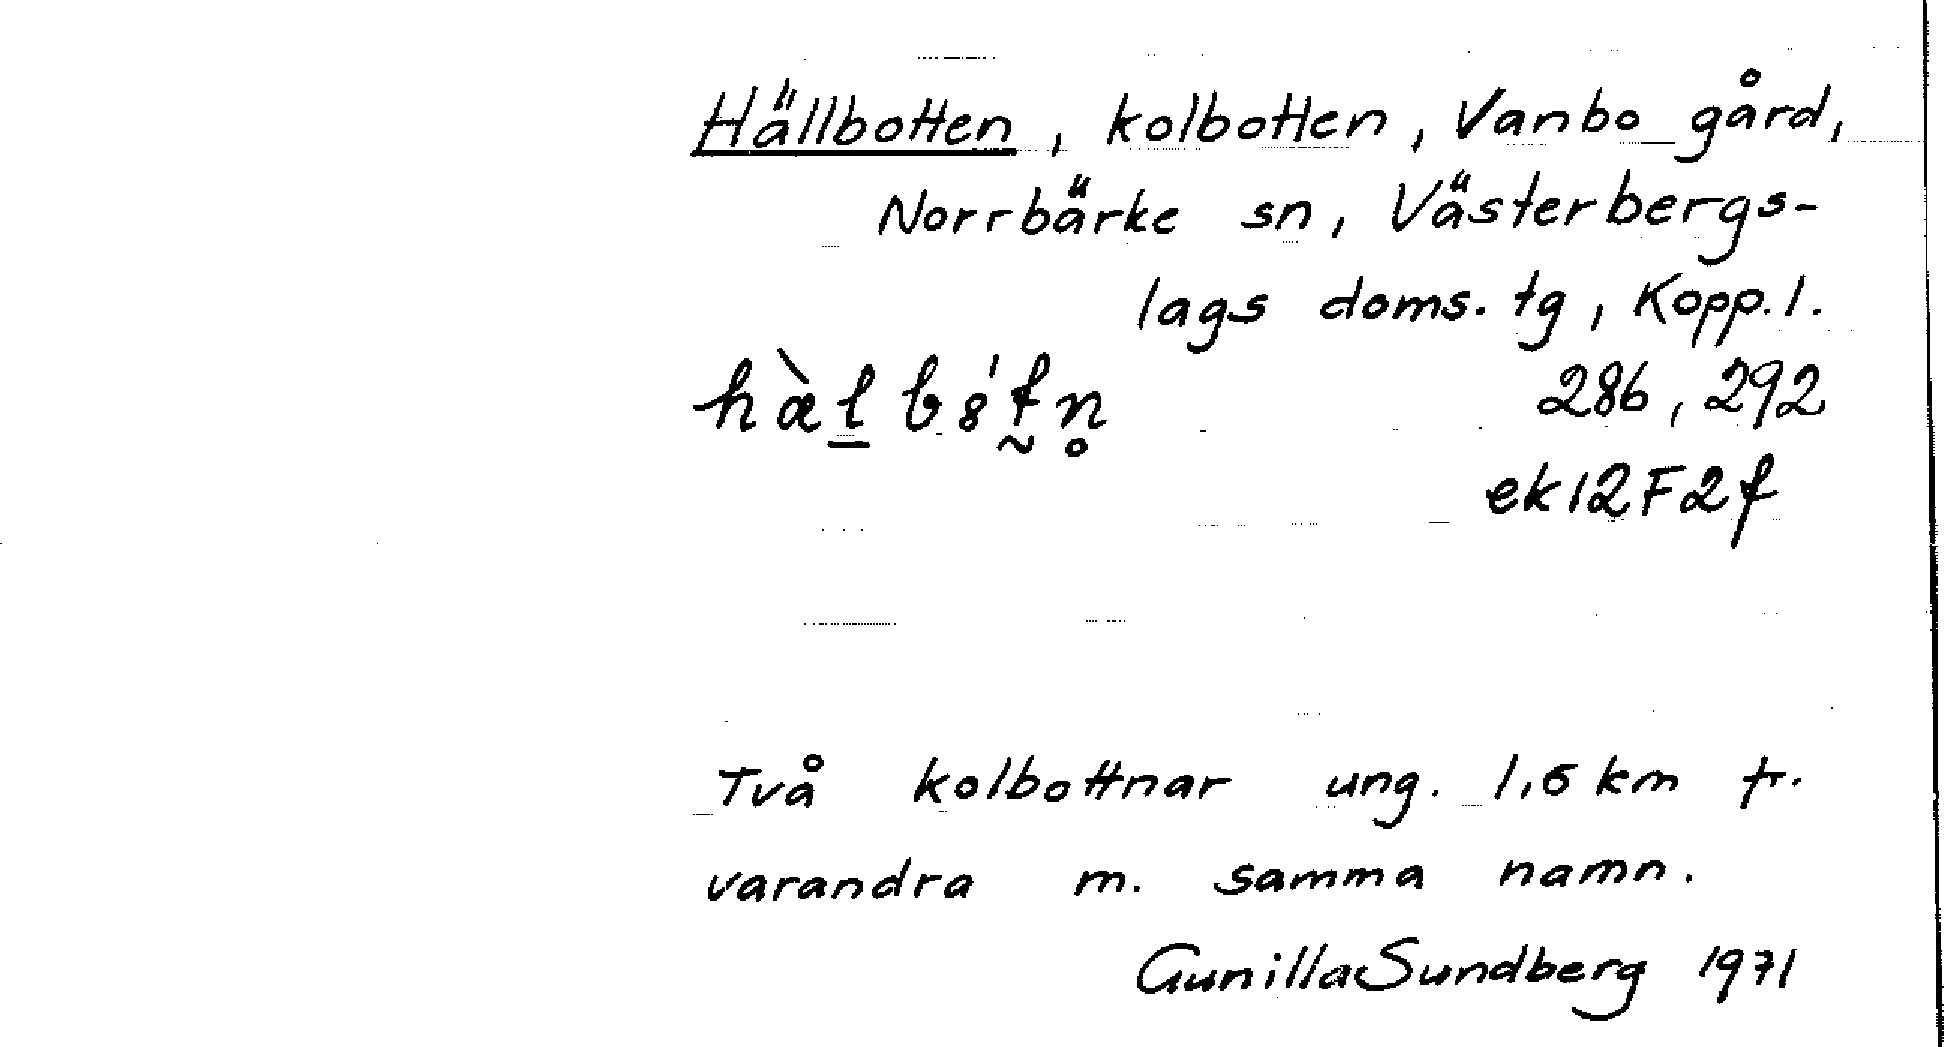 Hällbotten, kolbotten, Vanbo gård,
Norrbärke sn, Västerbergs-
lags doms. tg, Kopp. l.
286, 292
ek 12F2f
Två kolbottnar ung. 1,5 km fr.
varandra m. samma namn.
Gunilla Sundberg 1971